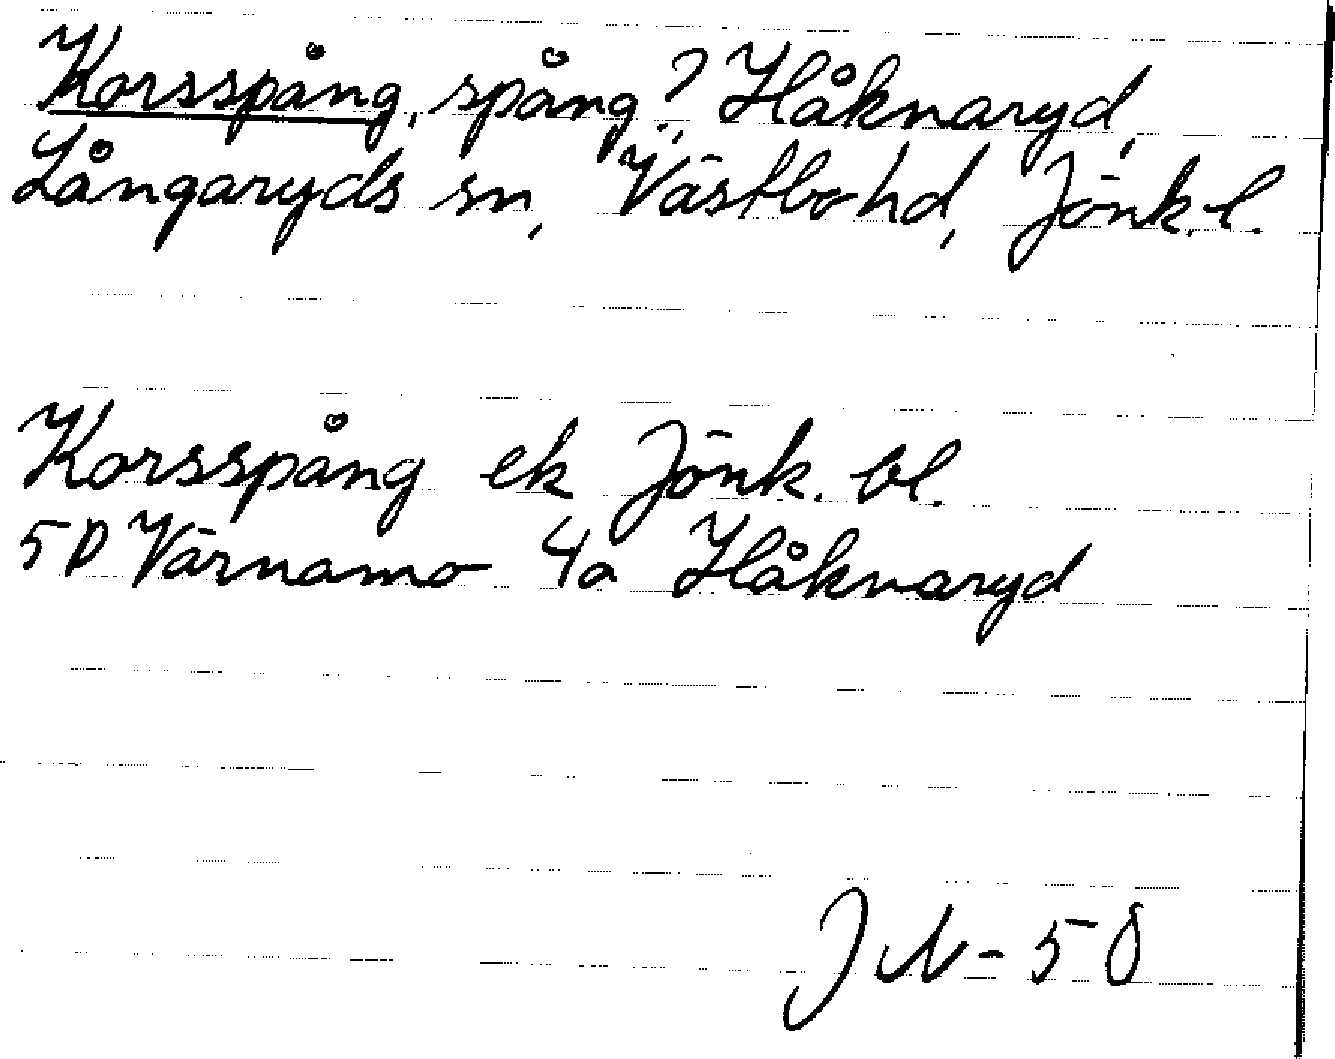 Korsspång, spång?, Håknaryd,
Långaryds sn, Västbo hd, Jönk. l.
Korsspång ek Jönk. bl.
5D Värnamo 4a Håknaryd
JN-50